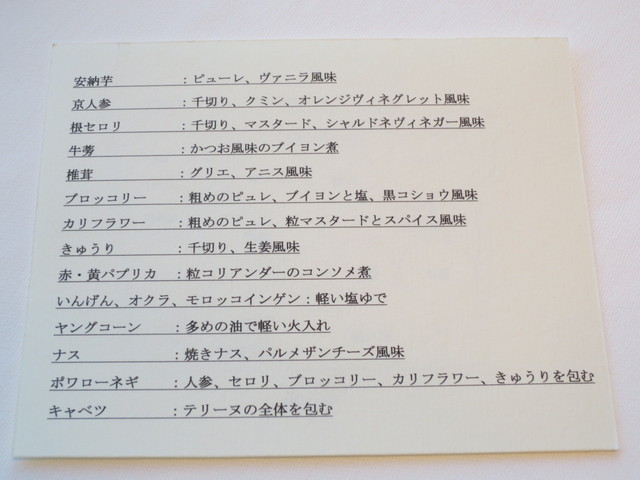 安納芋　　　：ピューレ、ヴァニラ風味
京人参　　　：千切り、クミン、オレンジヴィネグレット風味
根セロリ　　：千切り、マスタード、シャルドネヴィネガー風味
牛蒡　　　　：かつお風味のブイヨン煮
椎茸　　　　：グリエ、アニス風味
ブロッコリー　：粗めのピュレ、ブイヨンと塩、黒コショウ風味
カリフラワー　：粗めのピュレ、粒マスタードとスパイス風味
きゅうり　　：千切り、生姜風味
赤・黄パプリカ　：粒コリアンダーのコンソメ煮
いんげん、オクラ、モロッコインゲン：軽い塩ゆで
ヤングコーン　：多めの油で軽い火入れ
ナス　　　　：焼きナス、パルメザンチーズ風味
ポワローネギ　：人参、セロリ、ブロッコリー、カリフラワー、きゅうりを包む
キャベツ　　：テリーヌの全体を包む